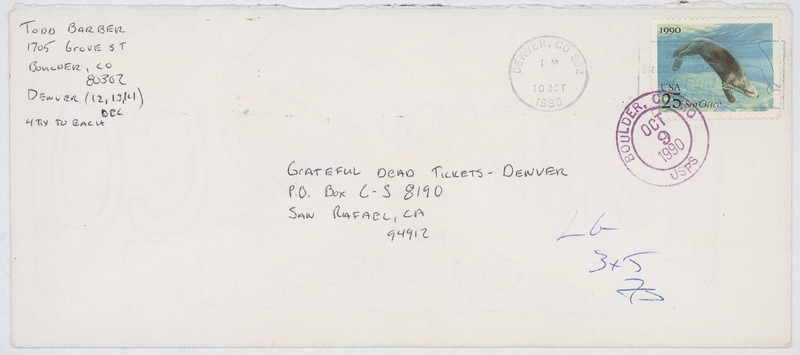 TODD BARBER
1705 GROVE ST
BOULDER, CO
80302
DENVER (12, 13, 14)
DEC
4 TIX TO EACH
DENVER, CO 802
PM
10 OCT
1990
1990
USA
25 Sea Otter
BOULDER, CO
OCT
9
1990
USPS
GRATEFUL DEAD TICKETS - DENVER
P.O. BOX C-S 8190
SAN RAFAEL, CA
94912
LG
3x5